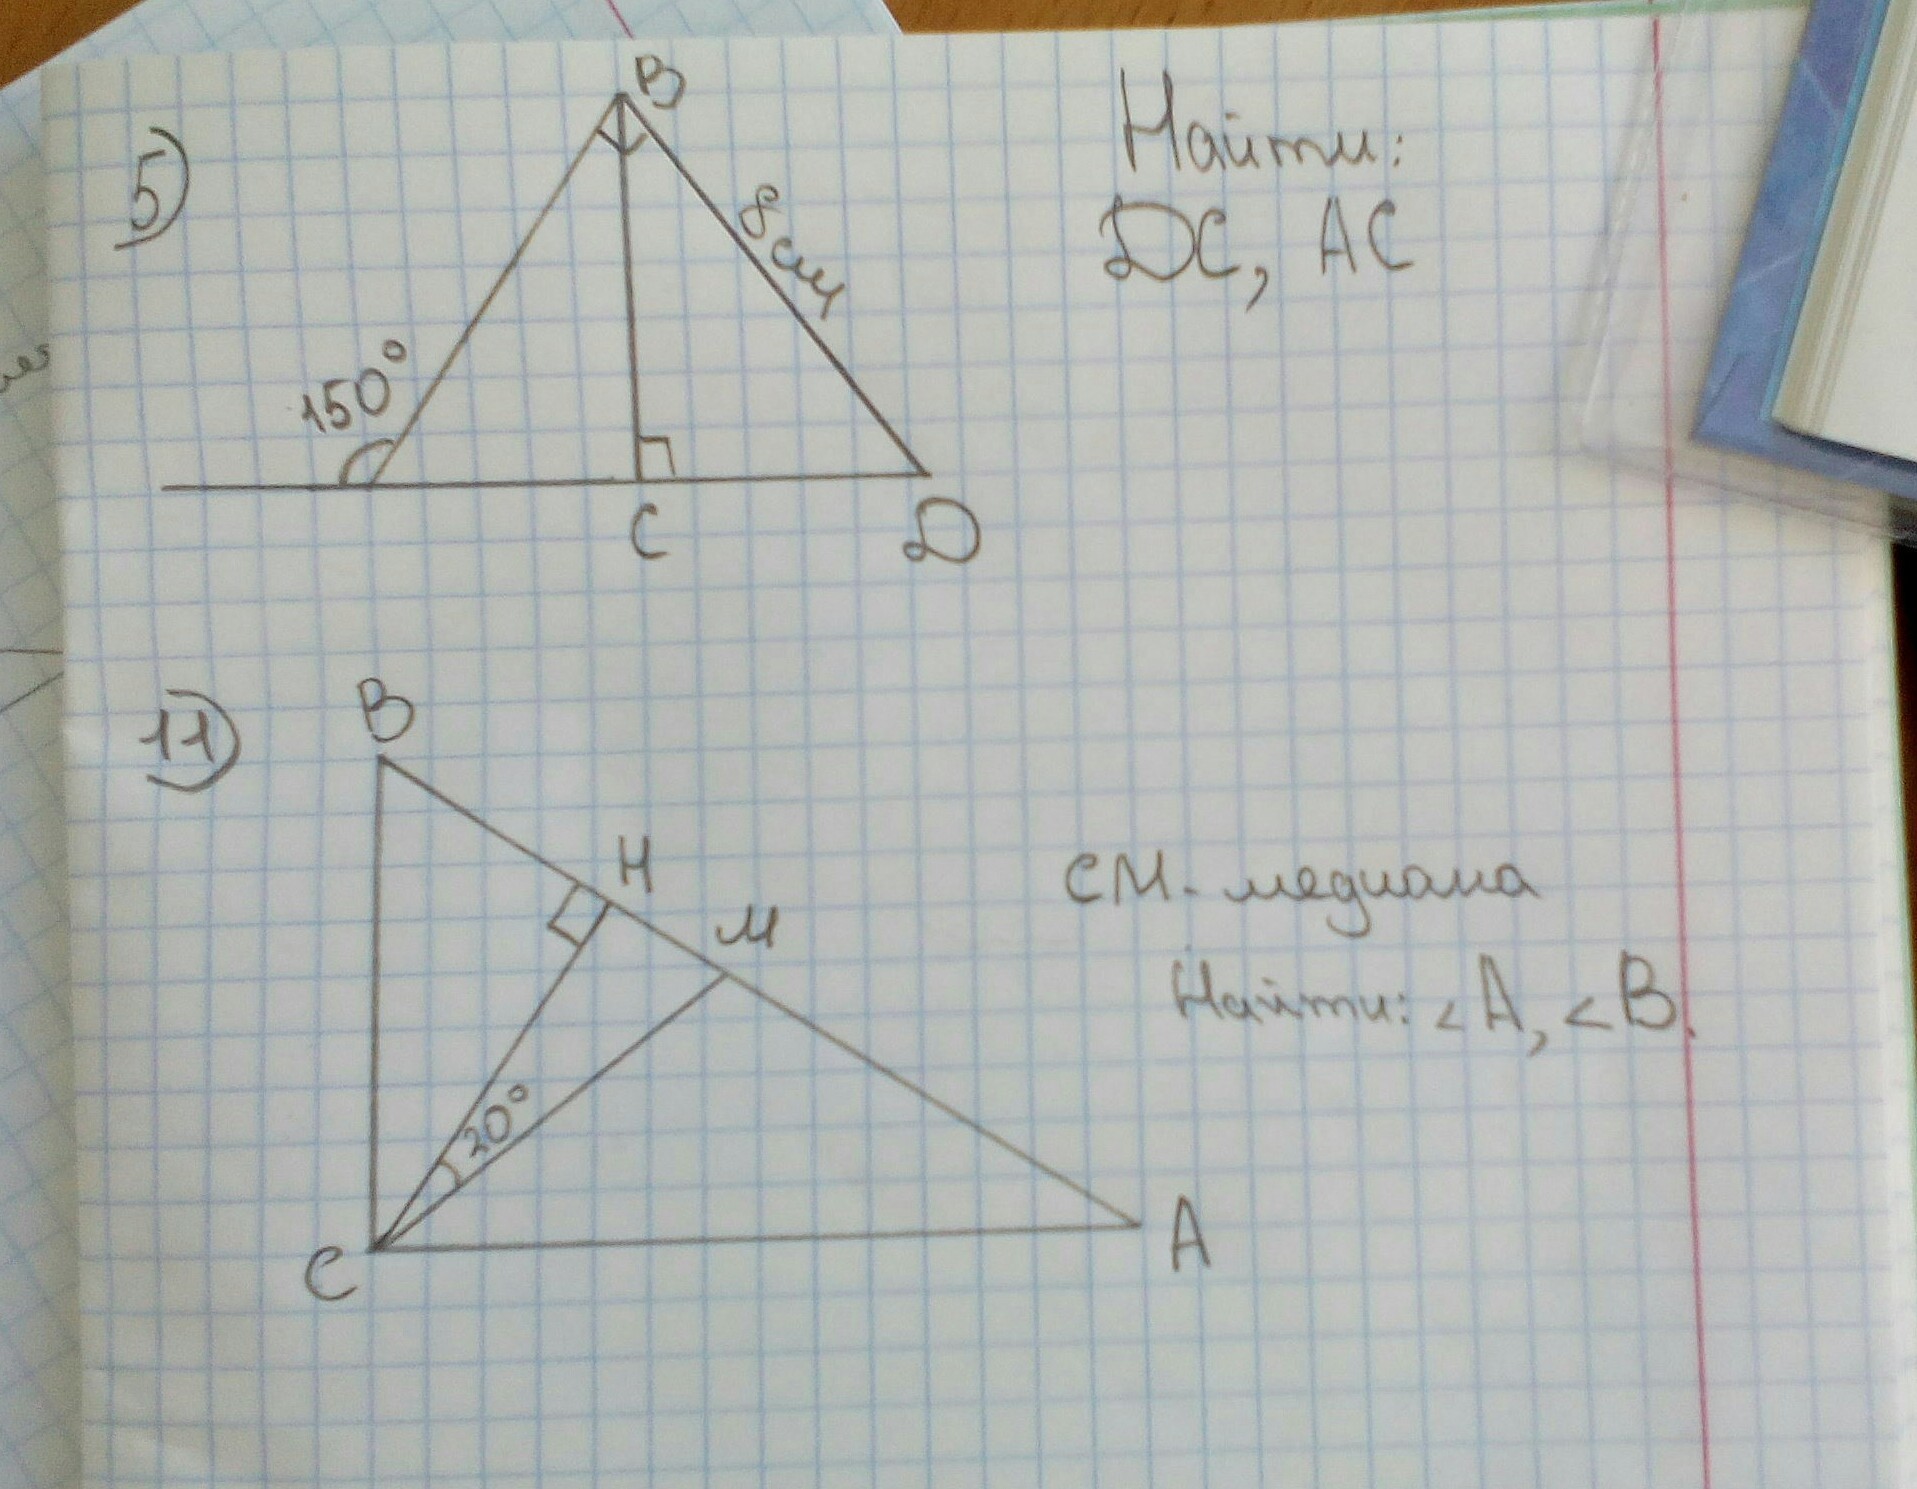 5)
B
8 см
150°
C
D
Найти:
DC, AC
11)
B
H
M
20°
C
A
СМ - медиана
Найти: <A, <B.